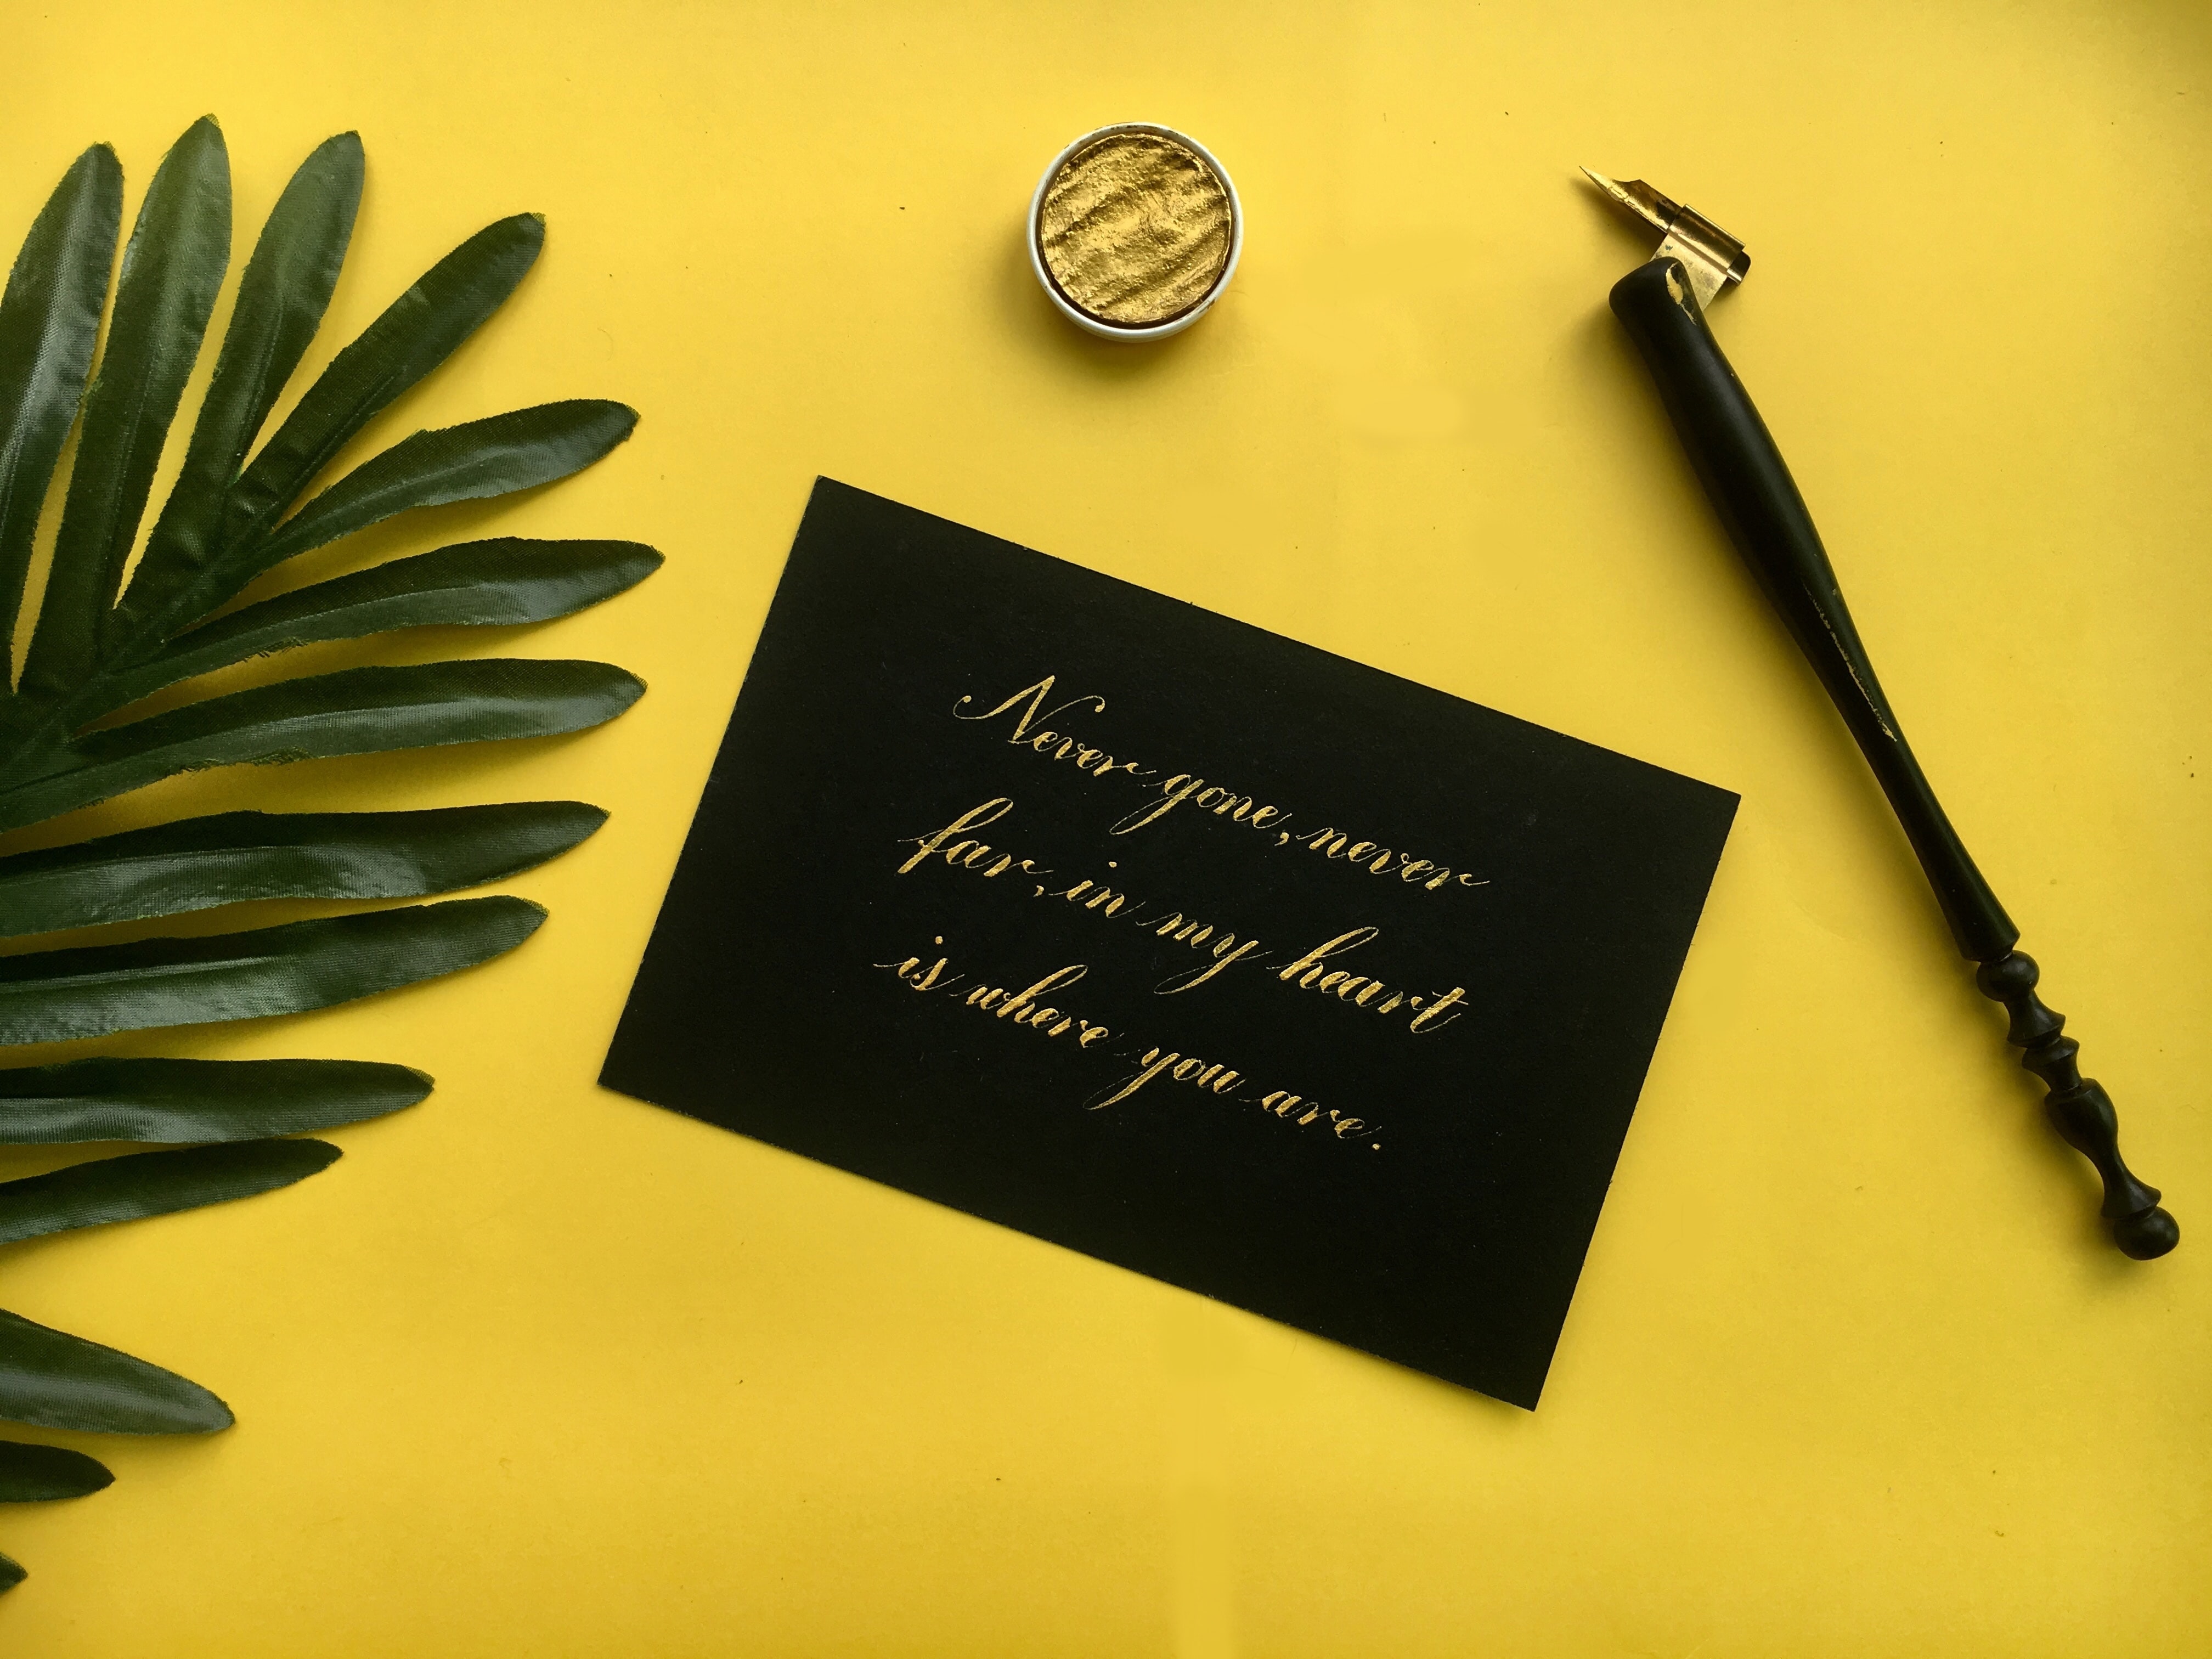 Never gone, never
far, in my heart
is where you are.